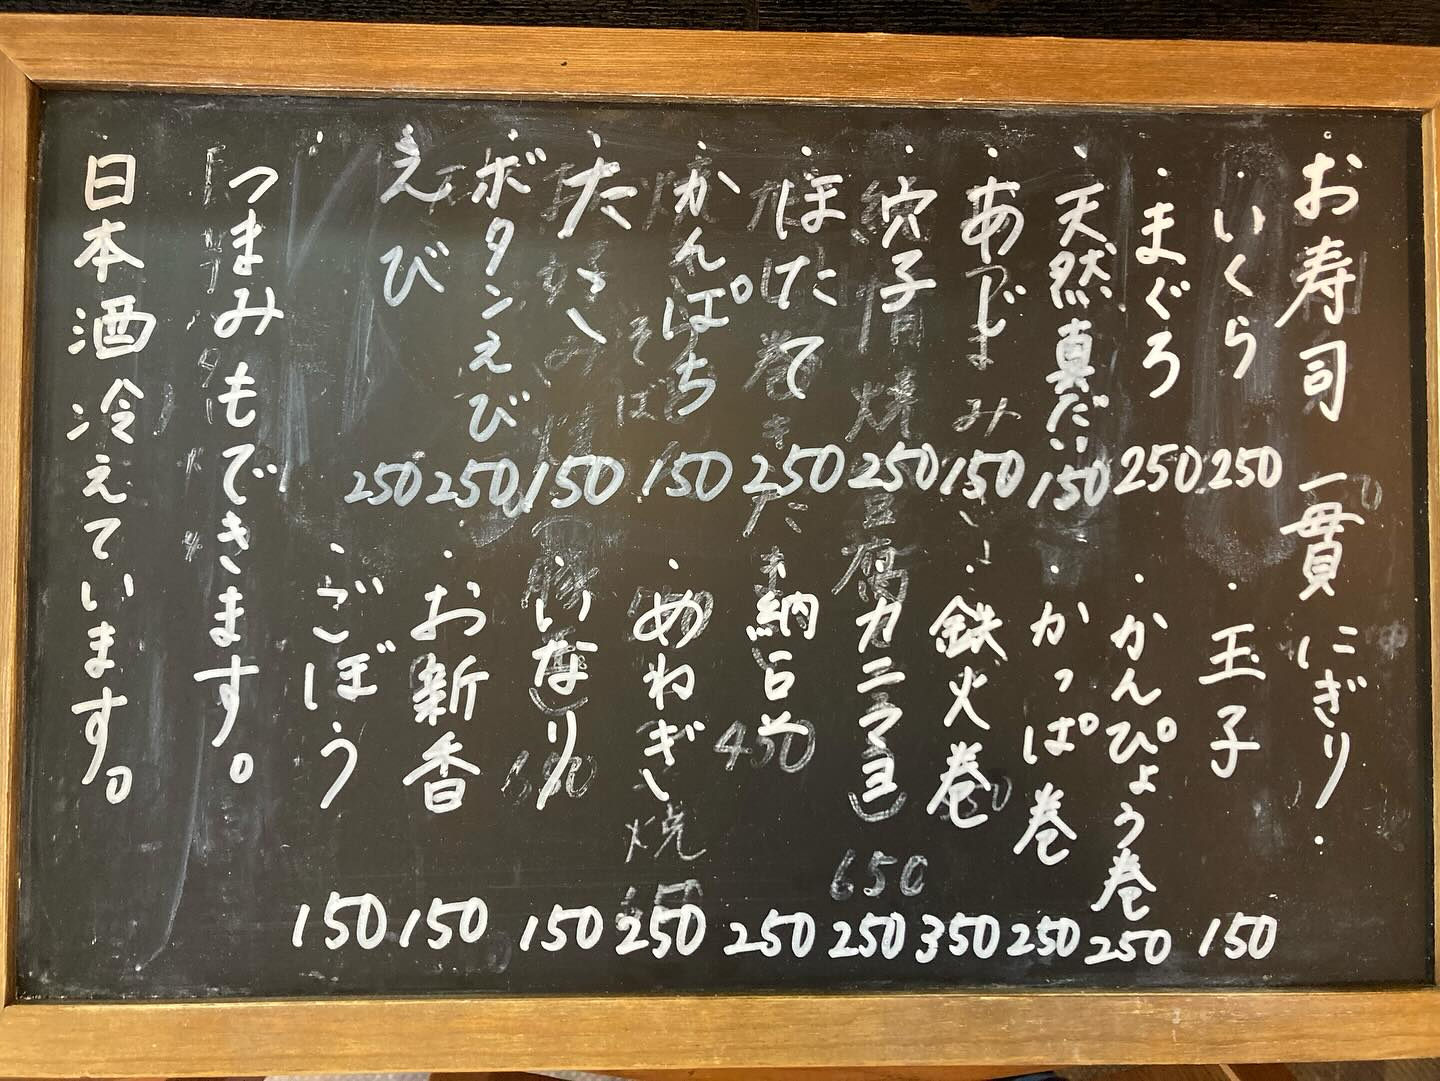 お寿司 一貫 にぎり.
・いくら 250
・まぐろ 250
・天然真だい 150
・あじ 150
・穴子 250
・ほたて 250
・かんぱち 150
・たこ 150
・ボタンえび 250
・えび 250
・玉子 150
・かんぴょう巻 250
・かっぱ巻 250
・鉄火巻 350
・カニマヨ 250
・納豆 250
・めねぎ 250
・いなり 150
・お新香 150
・ごぼう 150
つまみもできます。
日本酒冷えています。